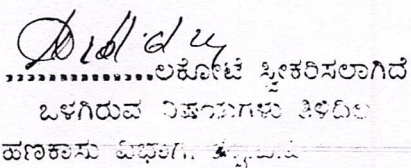 ..............ಲಕೋಟೆ ಸ್ವೀಕರಿಸಲಾಗಿದೆ
ಒಳಗಿರುವ ವಿಷಯಗಳು ತಿಳಿದಿಲ್ಲ
ಹಣಕಾಸು ವಿಭಾಗ,